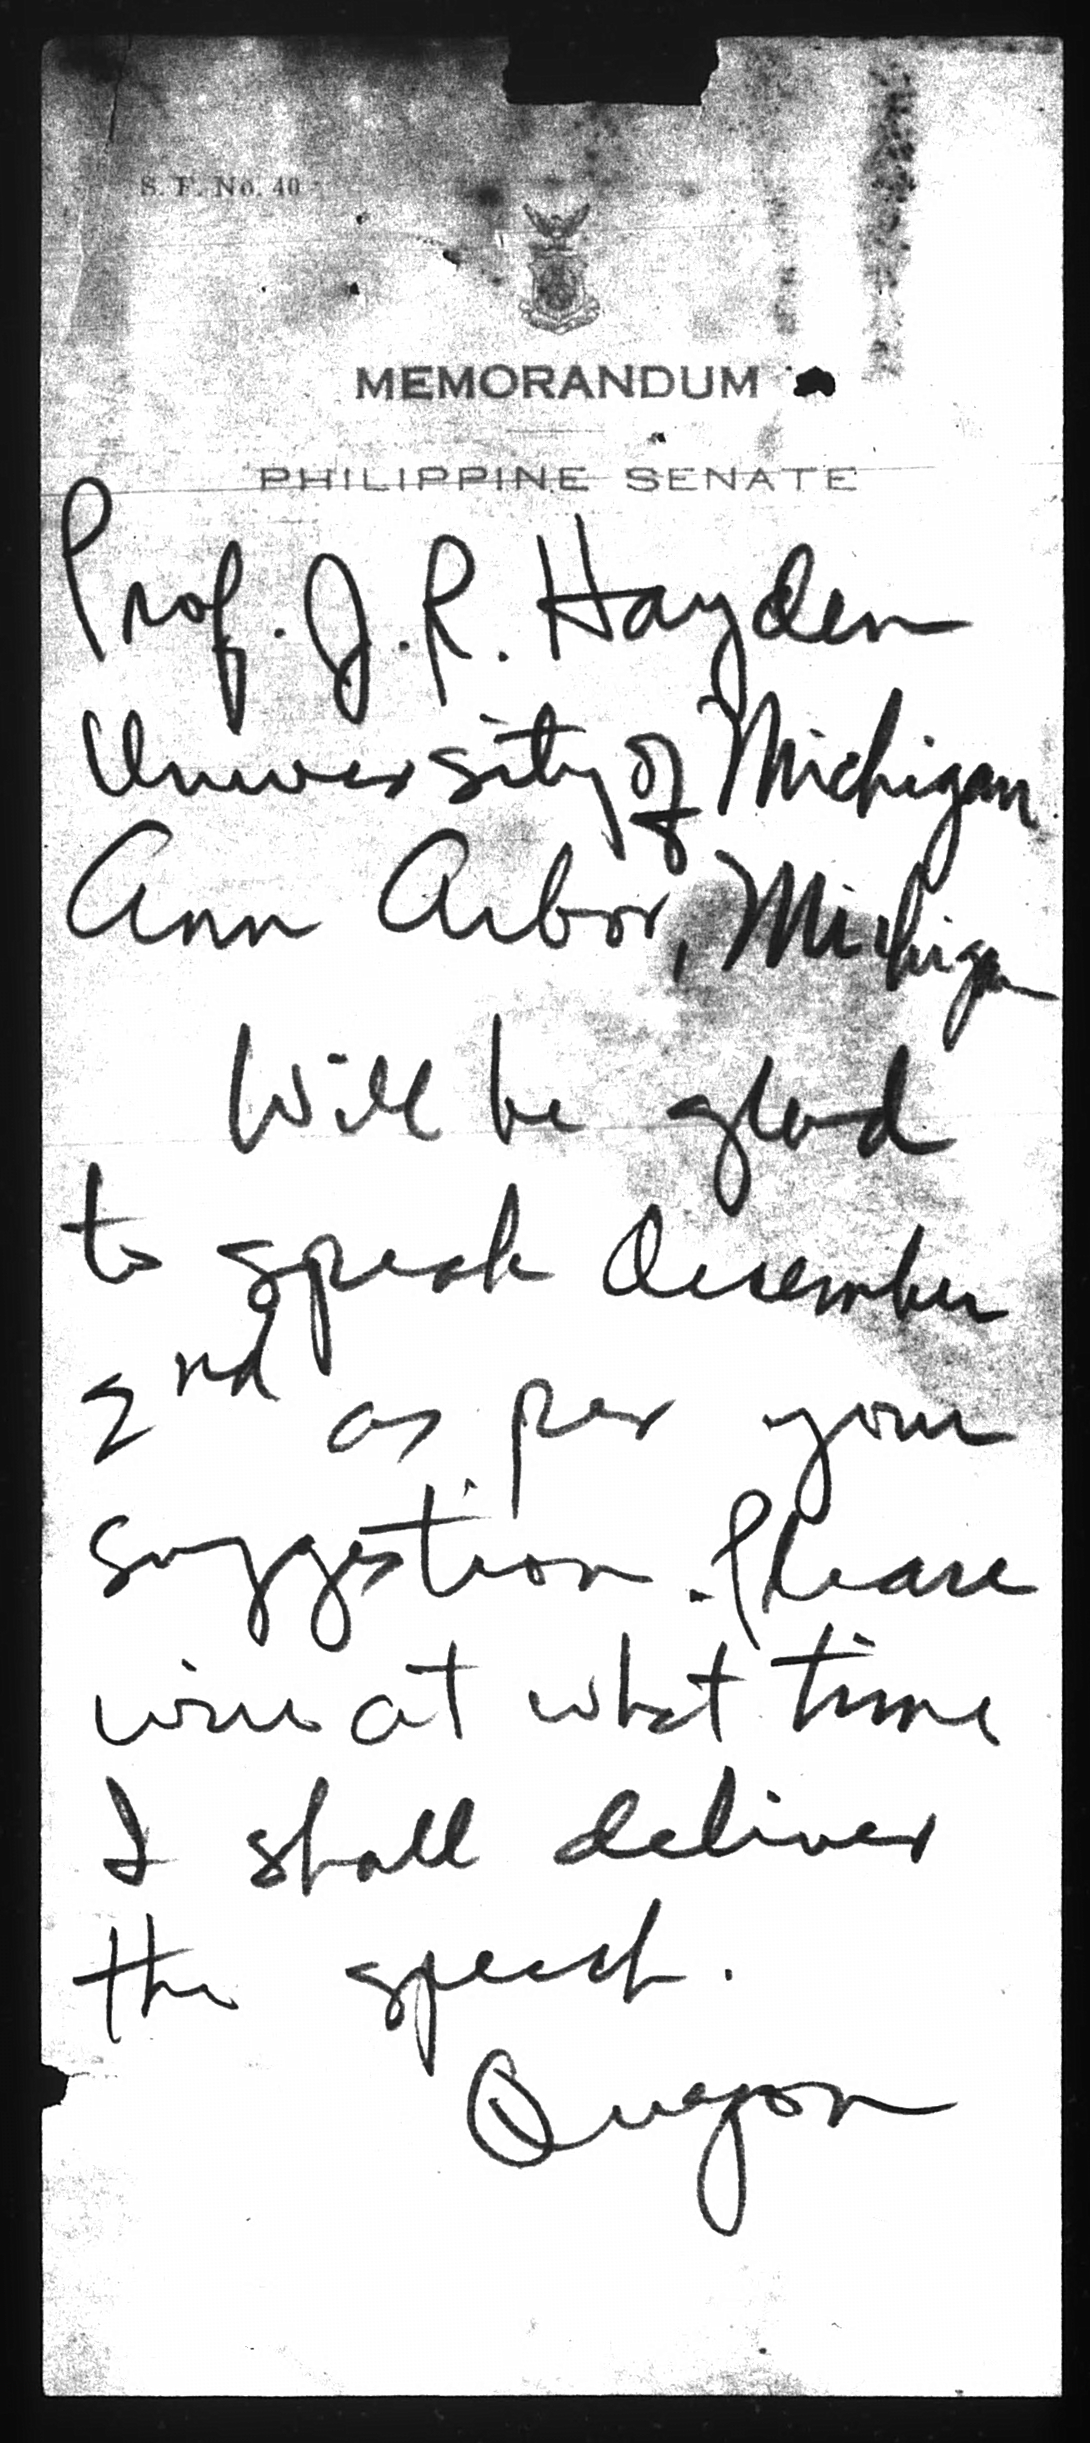 S. F. No. 40
MEMORANDUM
PHILIPPINE SENATE
Prof. J. R. Hayden
University of Michigan
Ann Arbor, Michigan
Will be glad
to speak December
2nd as per your
suggestion. Please
wire at what time
I shall deliver
the speech.
Quezon